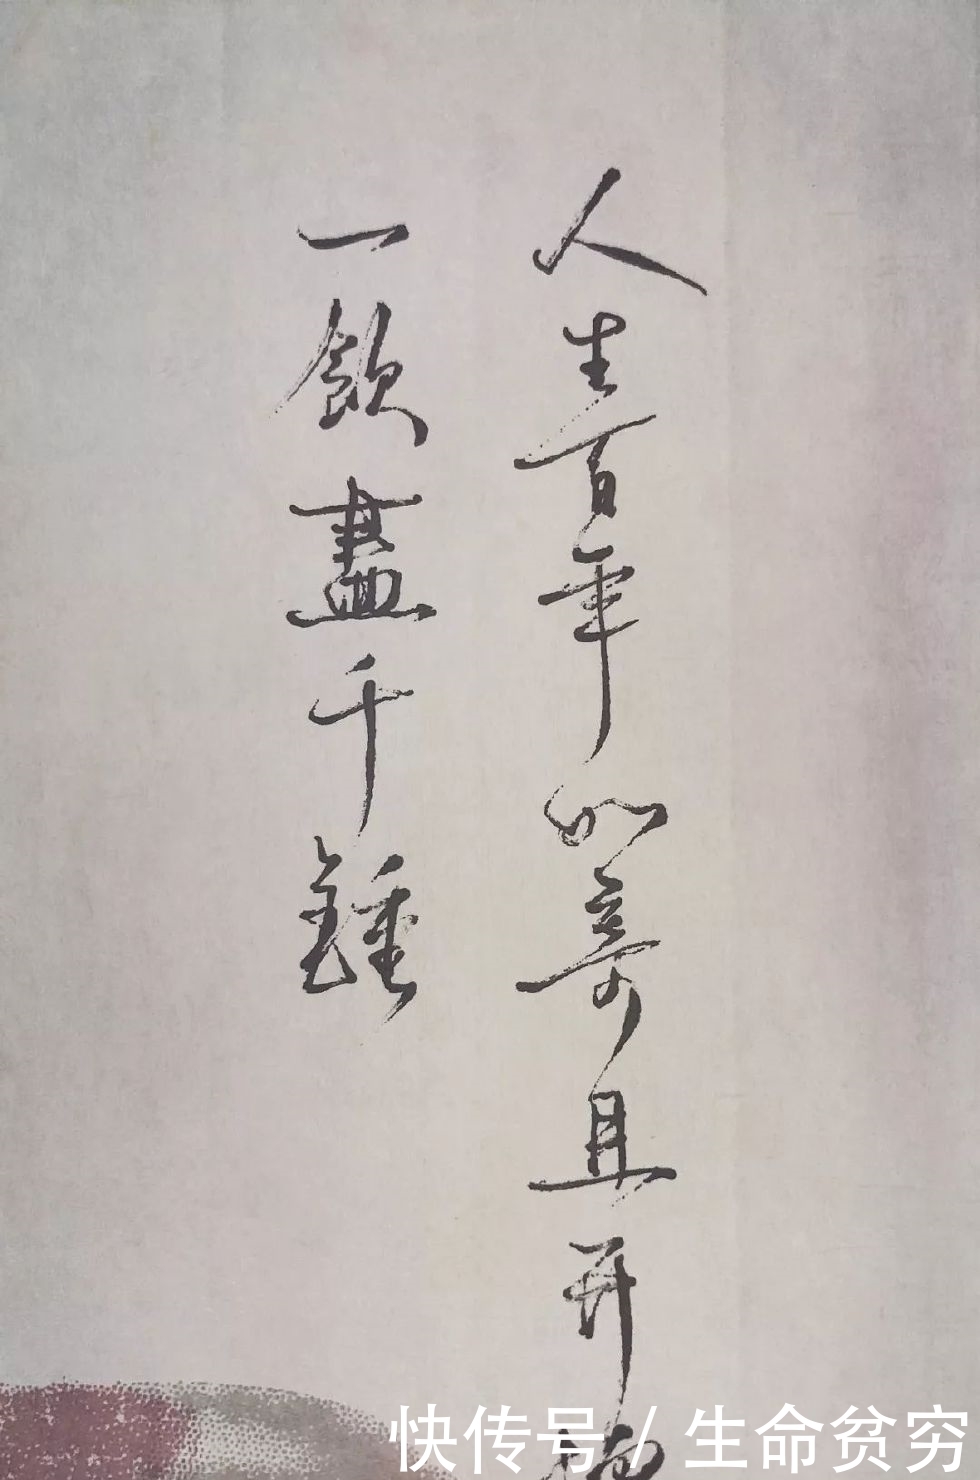 人生百年如寄且开
一飲盡千鍾
快传号 / 生命贫穷